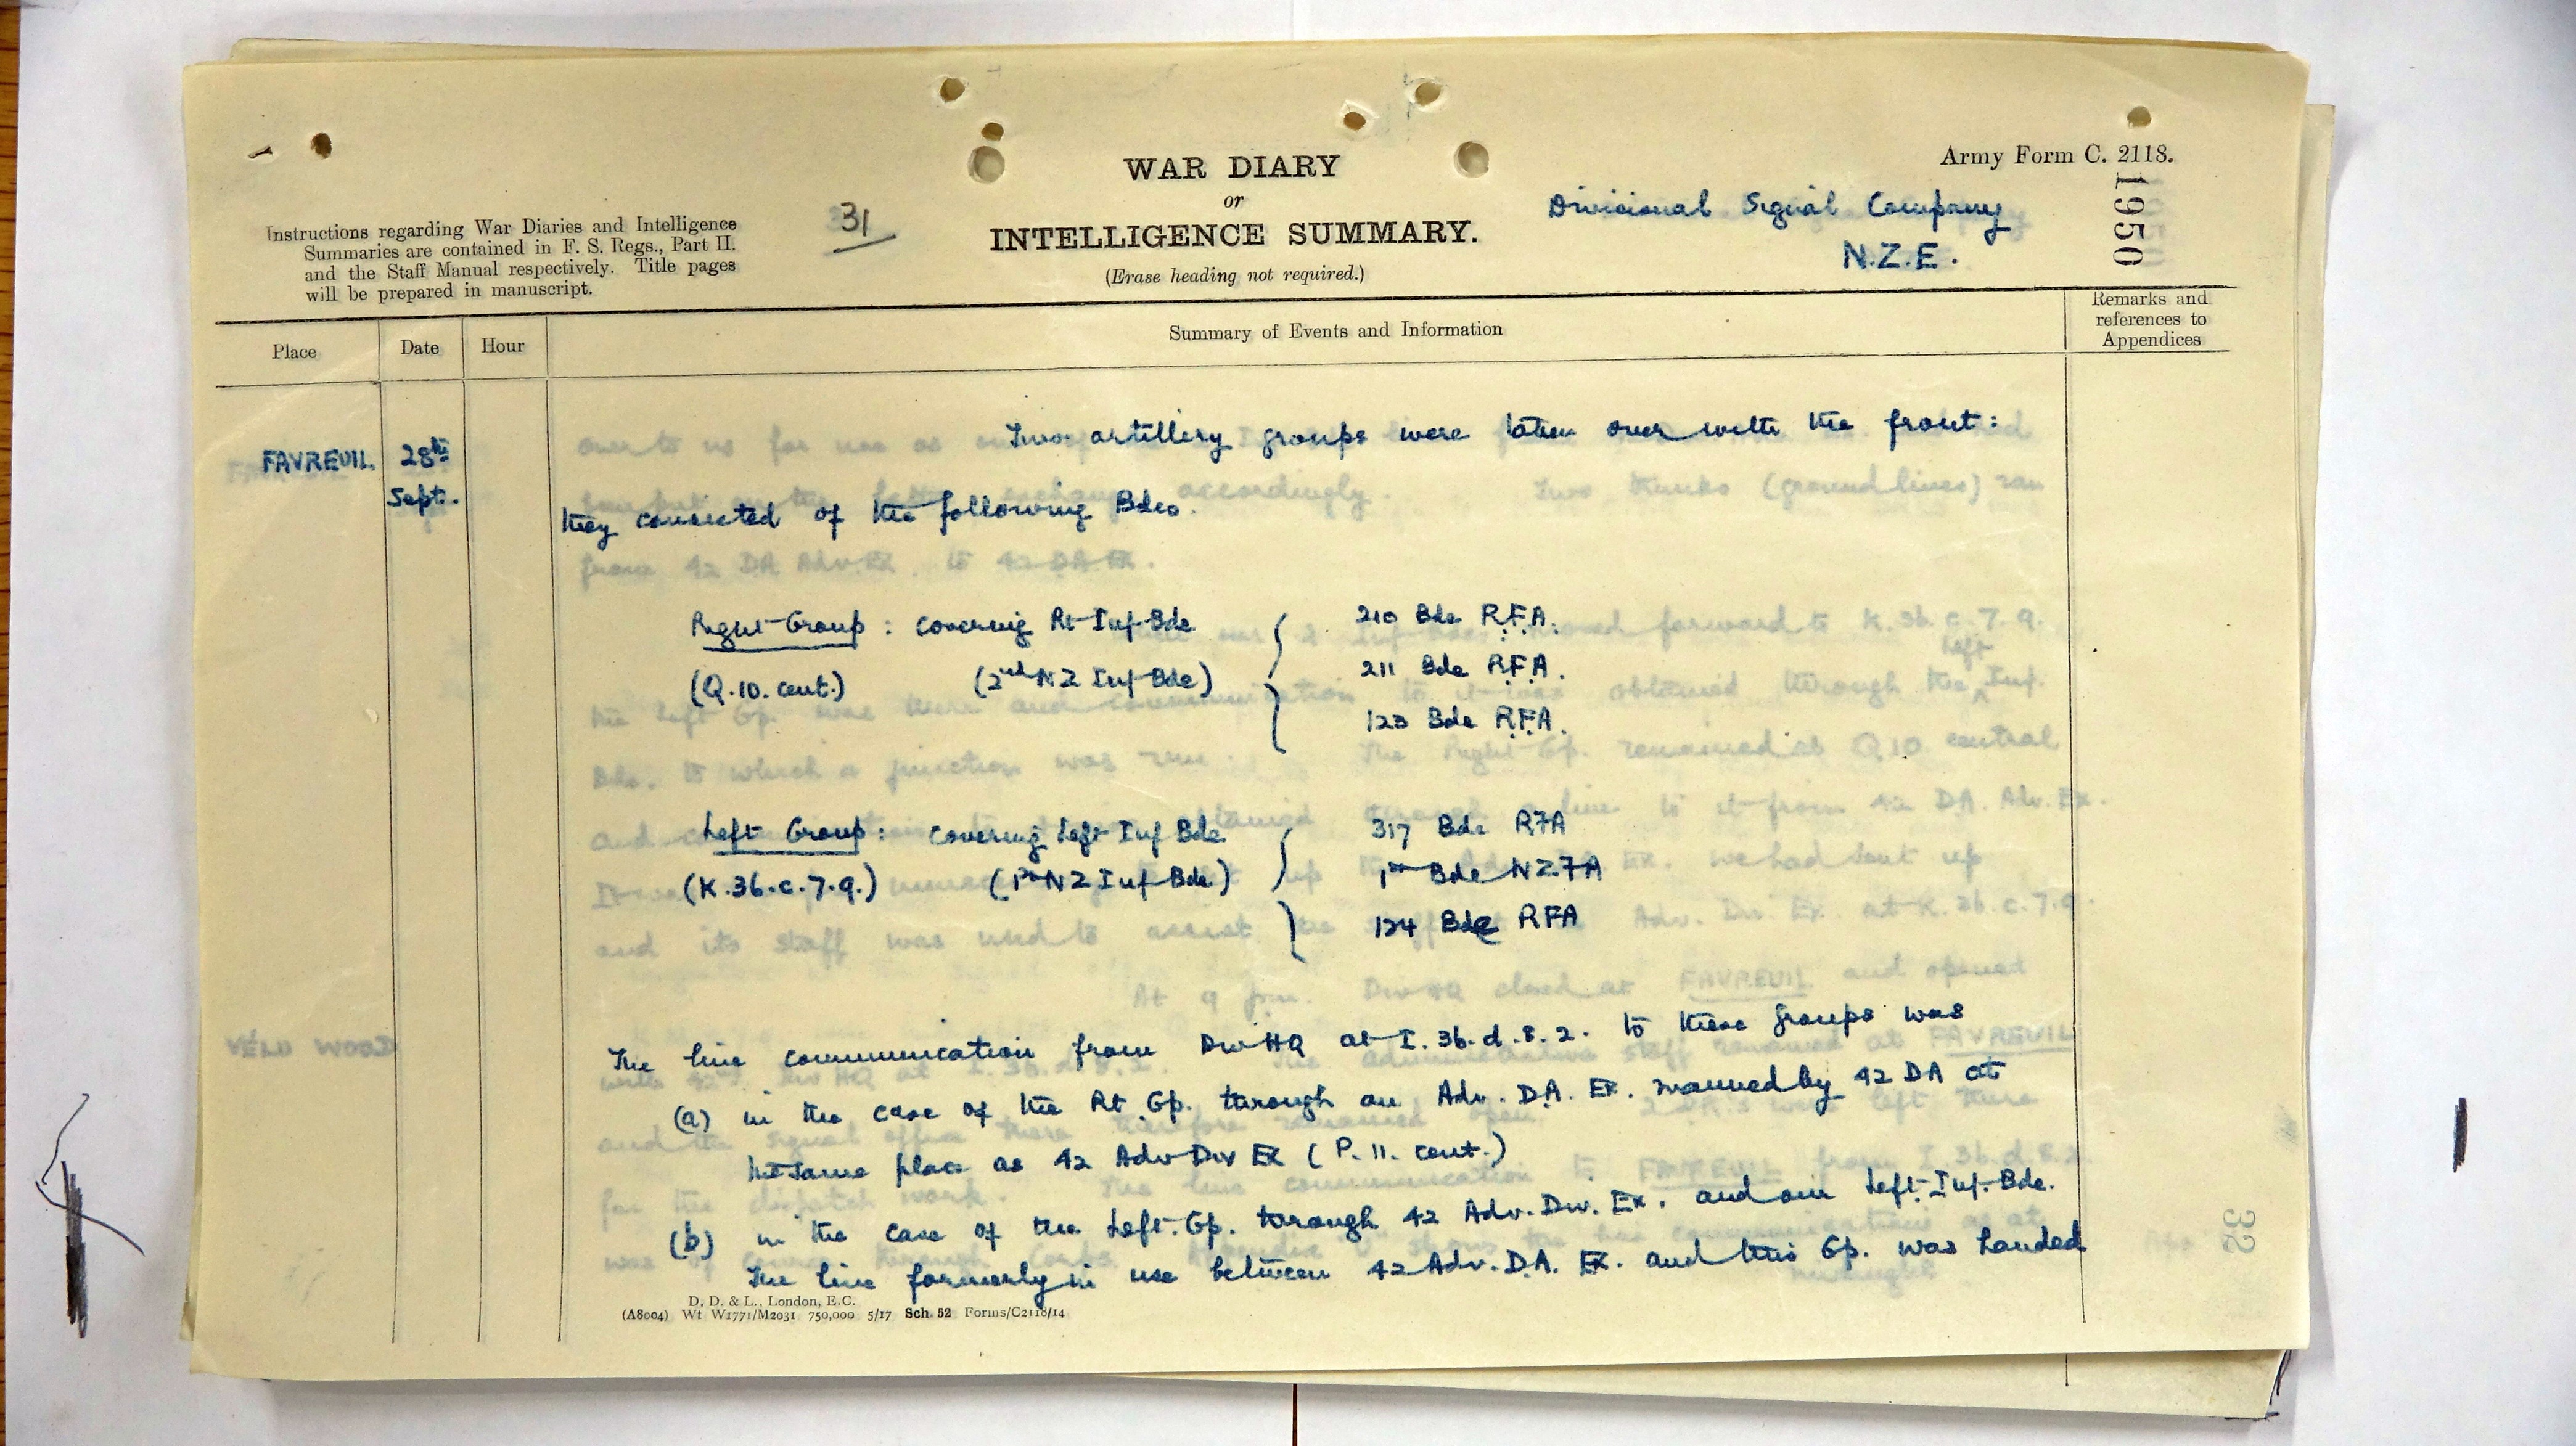 Army Form C. 2118.
WAR DIARY
or
INTELLIGENCE SUMMARY.
(Erase heading not required.)
Instructions regarding War Diaries and Intelligence
Summaries are contained in F. S. Regs., Part II.
and the Staff Manual respectively. Title pages
will be prepared in manuscript.
31
Divisional Signal Company
N.Z.E.
1950
Place Date Hour Summary of Events and Information Remarks and references to Appendices
FAVREUIL. 28th Sept. Two artillery groups were taken over with the front:
they consisted of the following Bdes.
Right Group: covering Rt Inf Bde 210 Bde R.F.A.
(Q.10.cent.) (2nd NZ Inf Bde) 211 Bde R.F.A.
123 Bde R.F.A.
Left Group: covering Left Inf Bde 317 Bde RFA
(K.36.c.7.9.) (1st NZ Inf Bde) 1st Bde NZFA
124 Bde RFA
The line communication from Div HQ at I.36.d.8.2. to these groups was
(a) in the case of the Rt Gp. through an Adv. D.A. Ex. manned by 42 DA at
the same place as 42 Adv Div Ex (P.11.cent.)
(b) in the case of the Left Gp. through 42 Adv. Div. Ex. and our Left Inf. Bde.
The line formerly in use between 42 Adv. D.A. Ex. and this Gp. was handed
D. D. & L., London, E.C.
(A8004) Wt W1771/M2031 750,000 5/17 Sch. 52 Forms/C2118/14